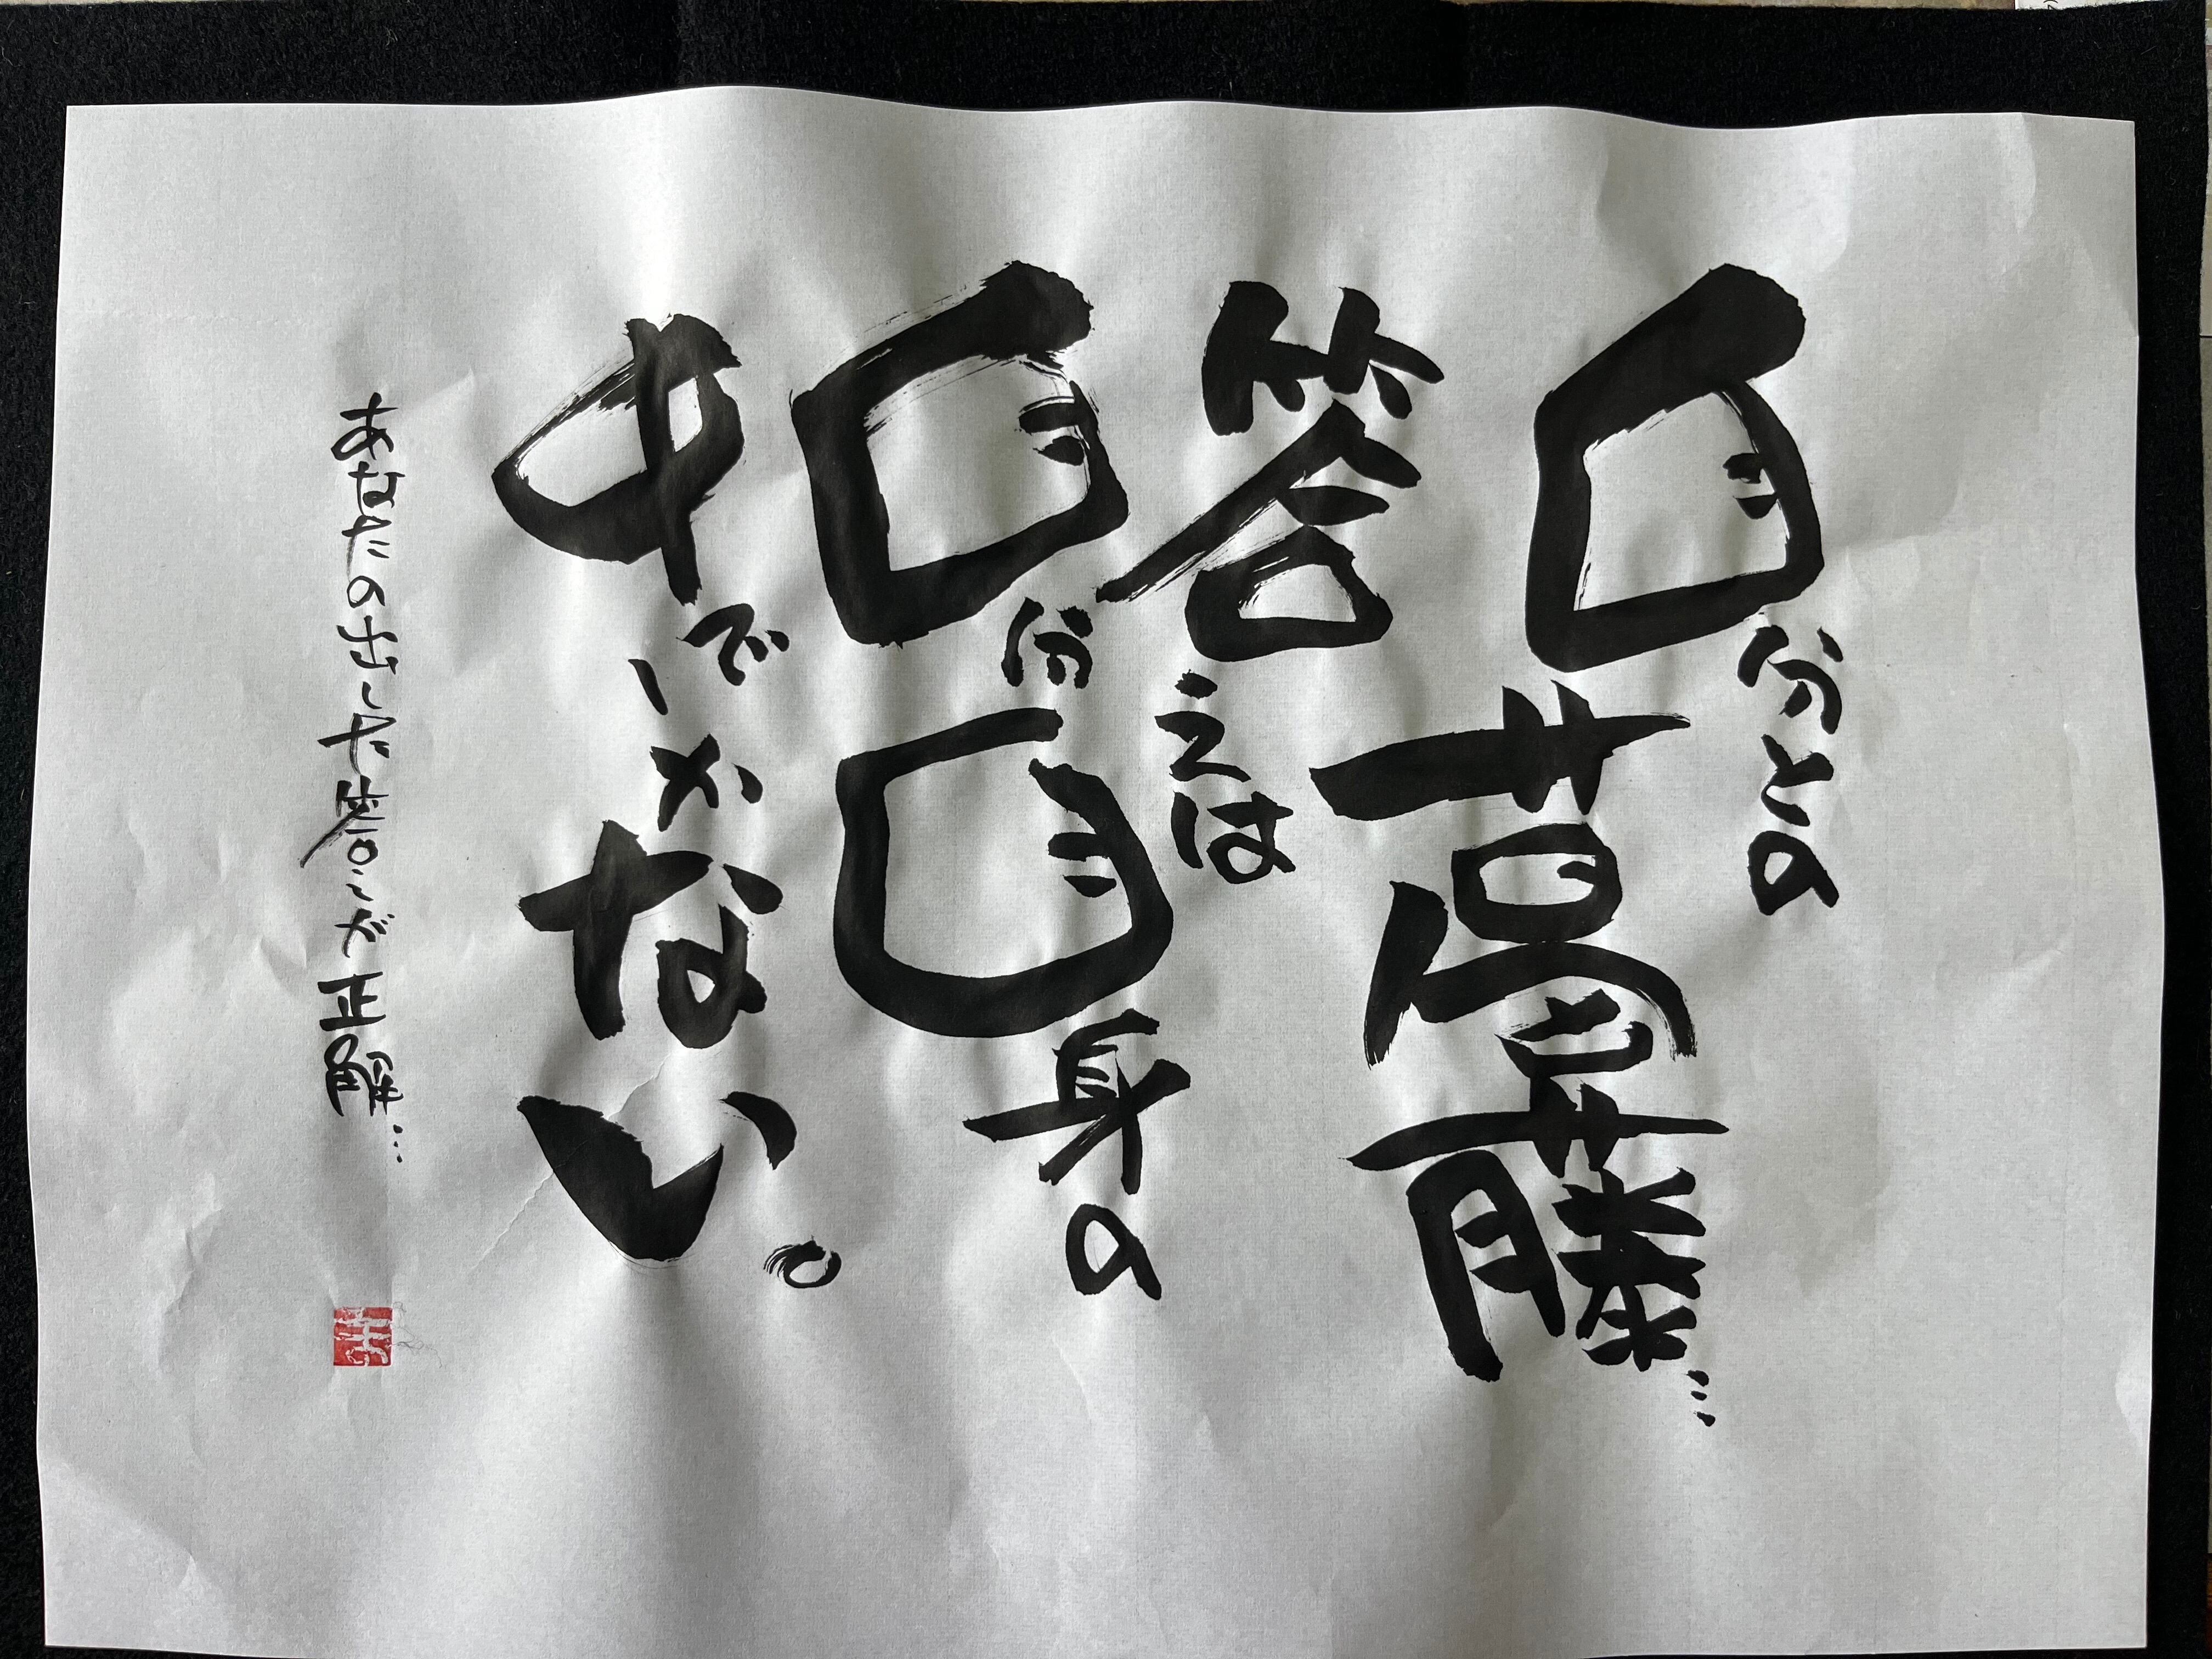 自分との
葛藤…
答えは
自分自身の
中でしかない。
あなたの出した答えが正解…